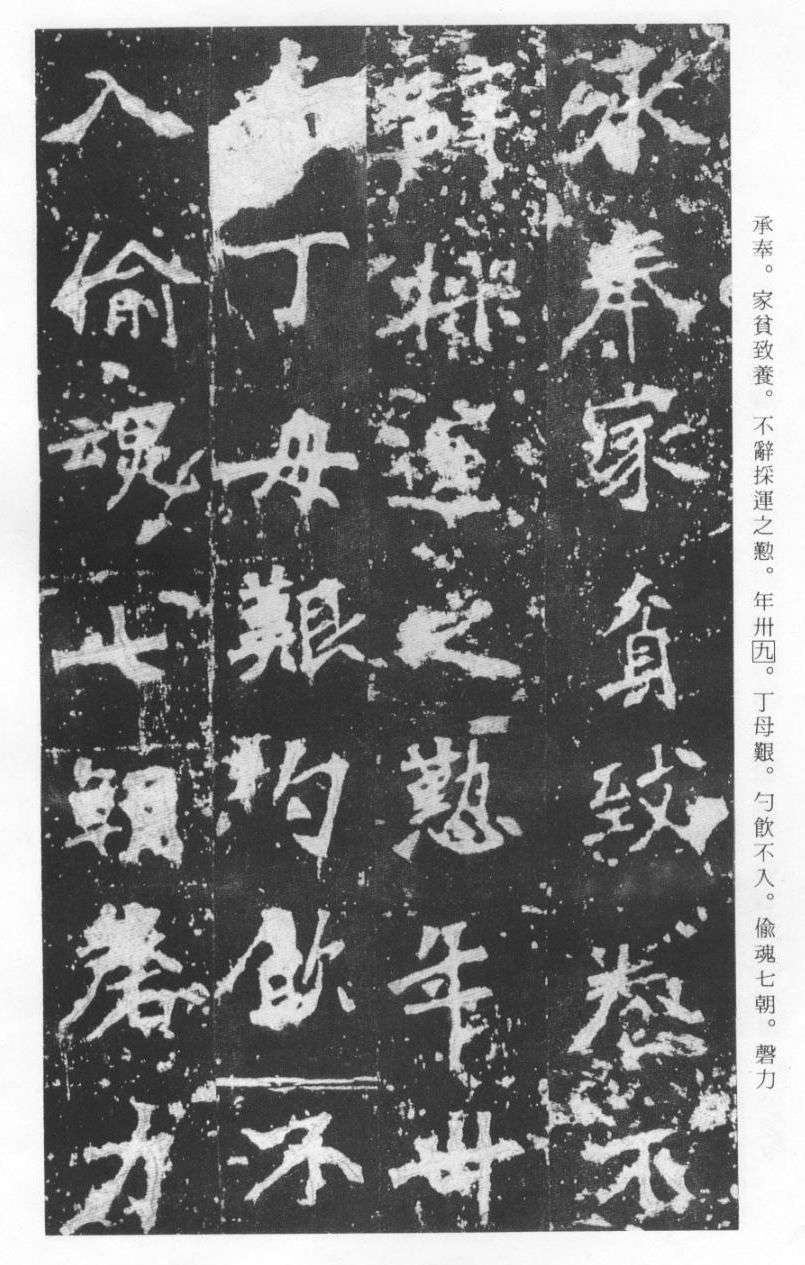 承奉。家貧致養。不辭採運之懃。年卅九。丁母艱。勺飲不入。偸魂七朝。磬力
承奉家貧致養不
辭採運之懃年卅
丁母艱杓飲不
入偷魂七朝磬力